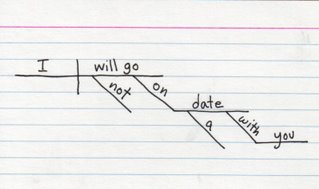 I will go
not on
date
a with
you